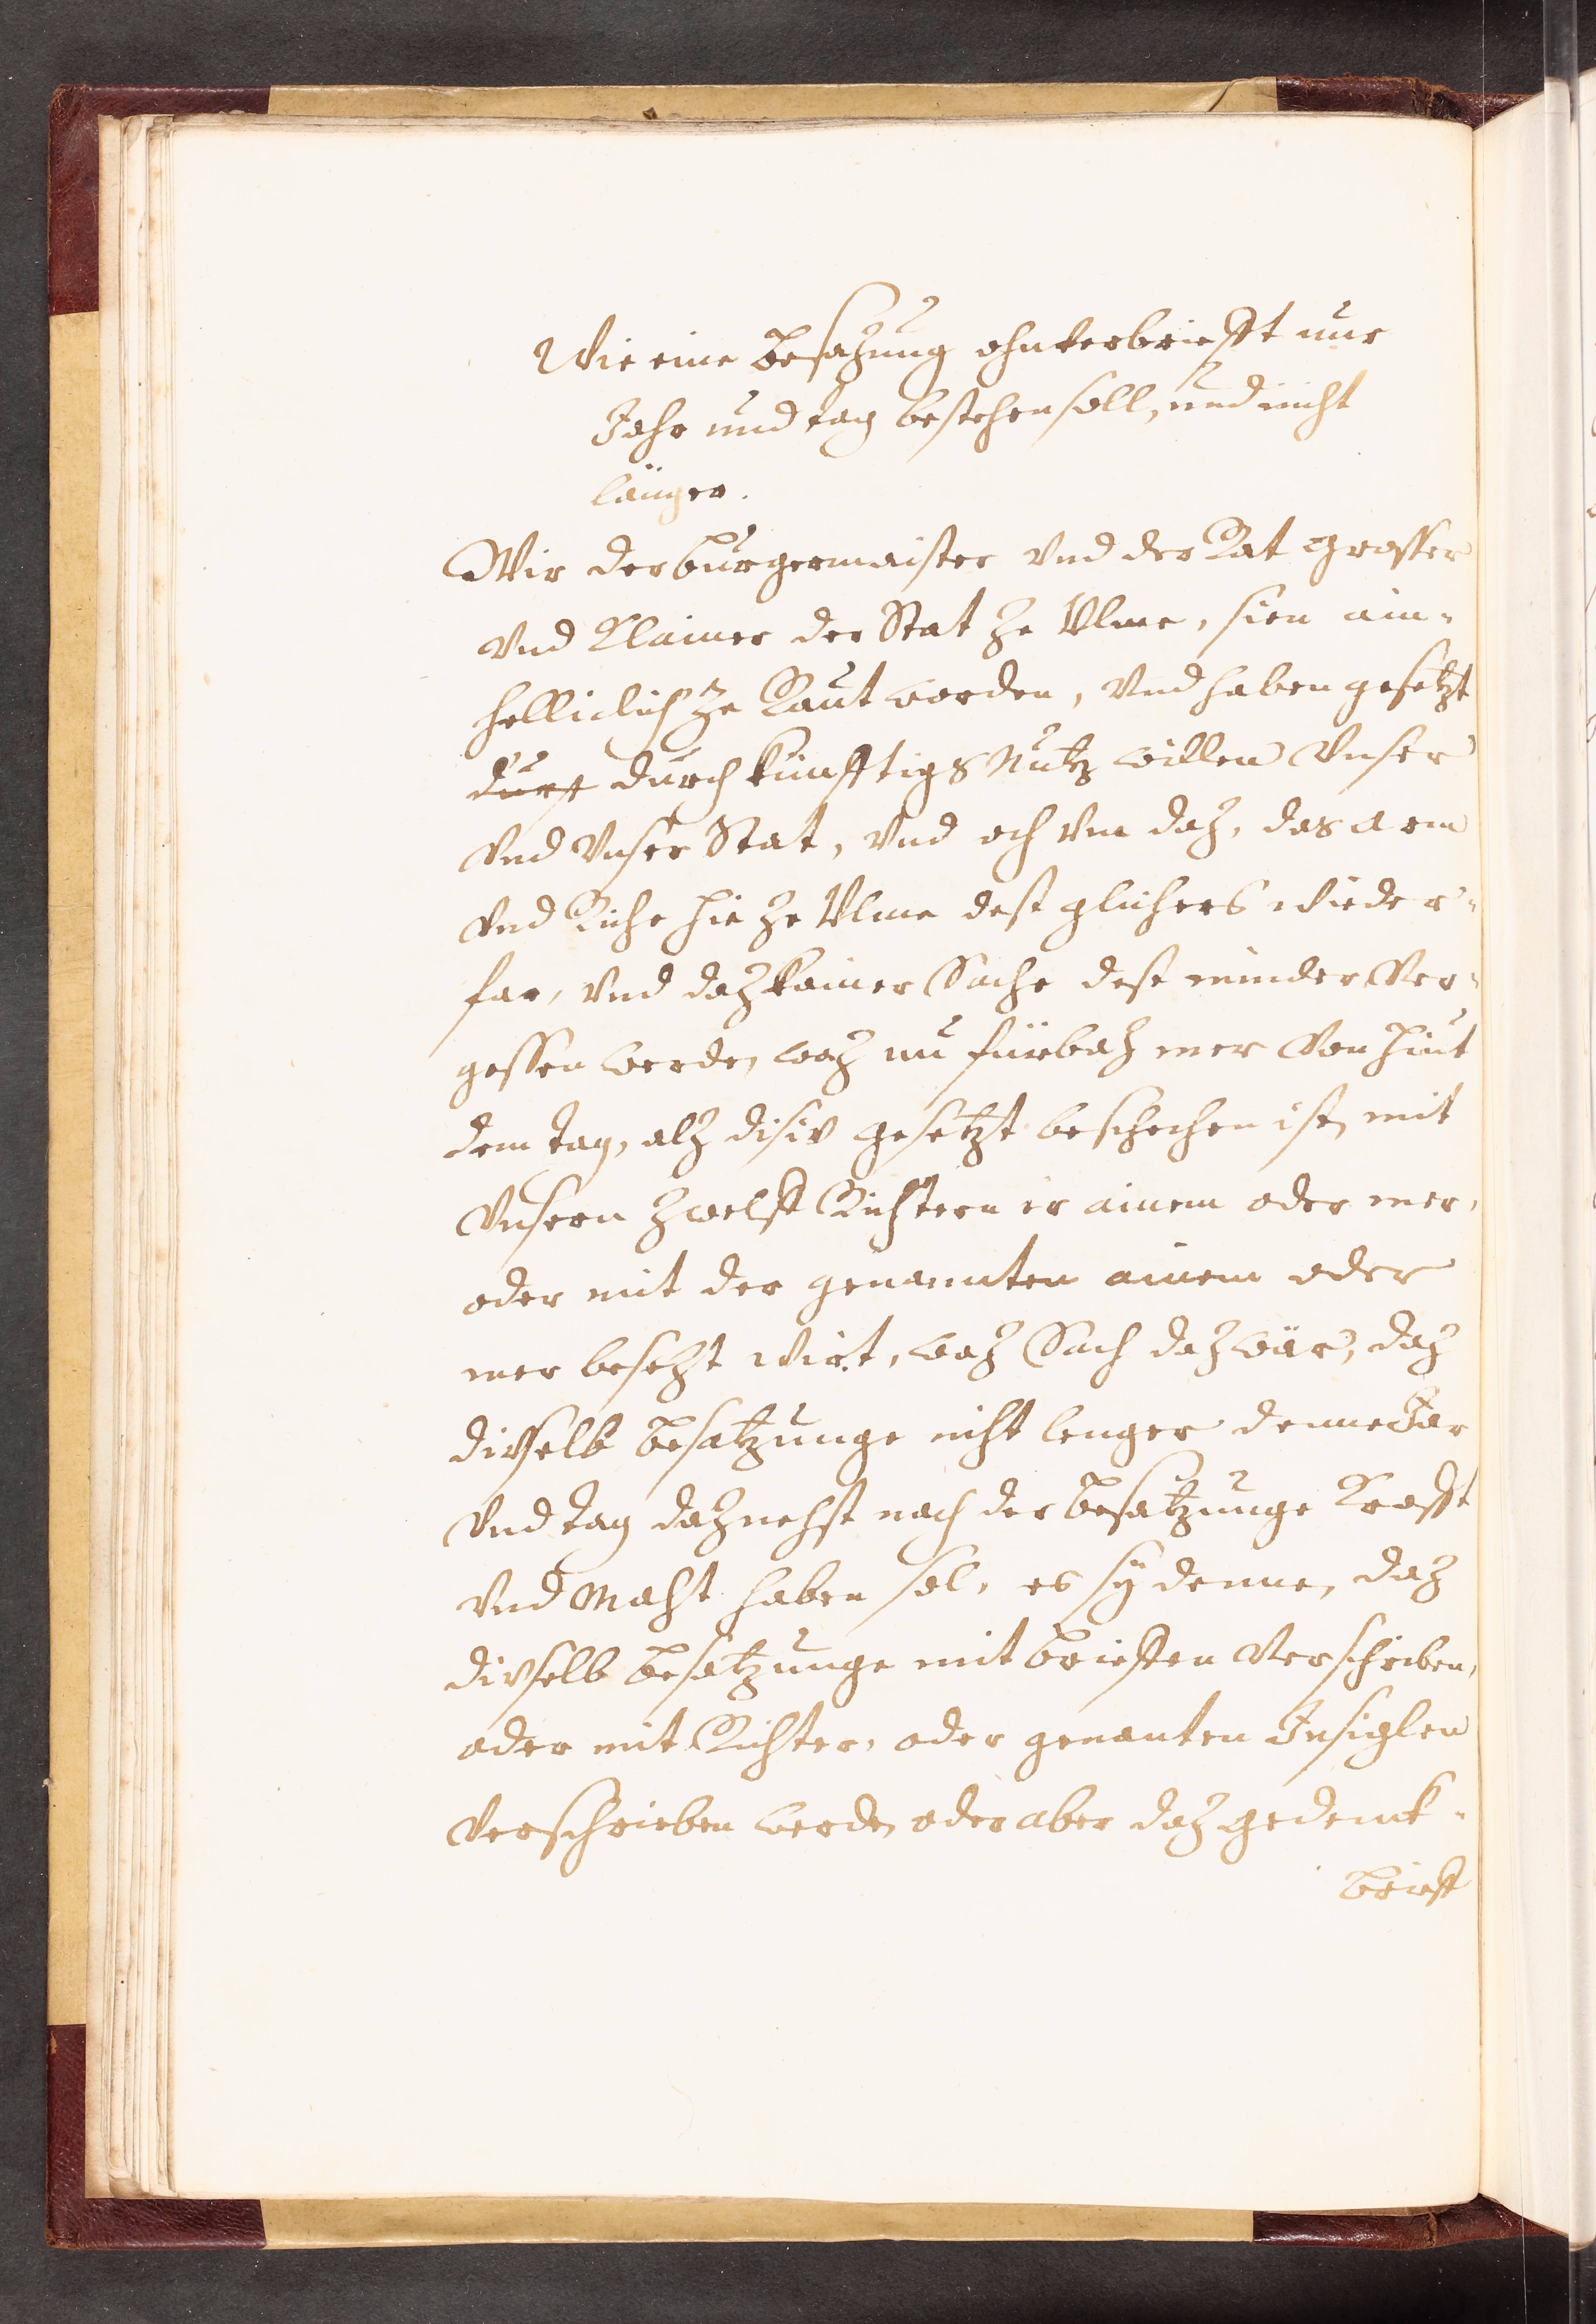 Wie eine Besazung ohnverbriefft nur
Jahr und tag bestehen soll, und nicht
länger.
Wir der burgermaister Vnd der Rat grosser
Vnd Klainer der Stat ze Vlme, sien ain-
helliclich ze Raut worden, Vnd haben gesetzt
durch künfftigs Nutz willen Vnser
Vnd Vnser Stat, Vnd och Vm daz, das arm
Vnd Riche hie ze Vlme dest glichers wieder-
far, Vnd daz kainer Sache dest minder Ver-
gessen werde, waz nu fürbaz mer Von hiut
dem tag, alz disiv gesetzt beschechen ist, mit
Vnsern zwelff Richtern ir ainem oder mer,
oder mit der genannten ainem oder
mer besetzt wirt, waz Sach daz wär, daz
divselb Besatzunge niht lenger denne Jar
Vnd tag daz nehst nach der Besatzunge Krafft
Vnd Maht haben sol, es sÿ denne, daz
divselb Besatzunge mit Brieffen Verschriben,
oder mit Richter, oder genanten Insiglen
Verschrieben werde, oder aber daz gedenck-
brieff